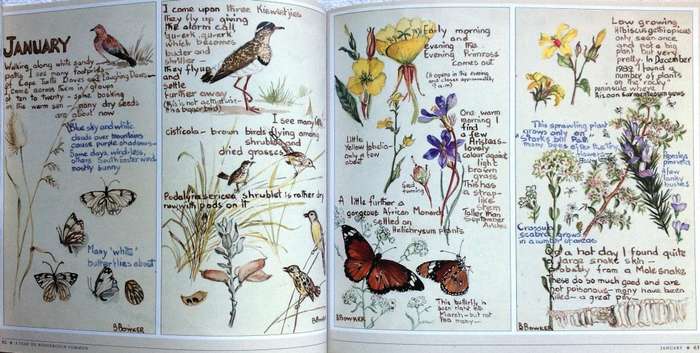 JANUARY
Walking along white sandy
paths I see many footprints
of Laughing Doves
I come across them in groups
of ten to twenty - some basking
in the warm sun - many dry seeds
are about now
Blue sky and white
clouds over mountains
cause purple shadows -
Some days windless,
others South Easter wind
mostly sunny
Many 'white'
butterflies about
B BOWKER
I come upon three Kiewietjies
they fly up giving
the alarm call
which becomes
louder and
shriller -
they fly up
and
settle
further away
(this is not as
the bigger bird)
I see many
cisticola - brown birds flying among
shrubs and
dried grasses
Podalyria sericea shrublet is rather dry
now with pods on it
B BOWKER
Early morning
and
evening the
Evening Primrose
comes out
(It opens in the evening
and closes approximately
9 a.m.)
Little
Yellow lobelia -
only a few
about
One warm
morning I
find
a few
Aristeas -
lovely
colour against
light
brown
grass
This has
a strap-
like
stem
Taller than
September
Aristea
A little further a
gorgeous African Monarch
settled on
Helichrysum plants
This butterfly is
seen right till
March - but not
too many -
B BOWKER
Low growing
Hibiscus aethiopicus
only seen once
and not a big
plant but very
pretty. In December
1992 I found a
number of plants
on the rocky
peninsula where
This sprawling plant
grows only on
Stark's Soil But
many bees often flutter
a few
lanky
bushes
Crassula
scabra grows
in a number of areas
On a hot day I found quite
a large snake skin -
probably from a Mole snake
these do so much good and are
not poisonous - many have been
killed - a great pity
B BOWKER
JANUARY